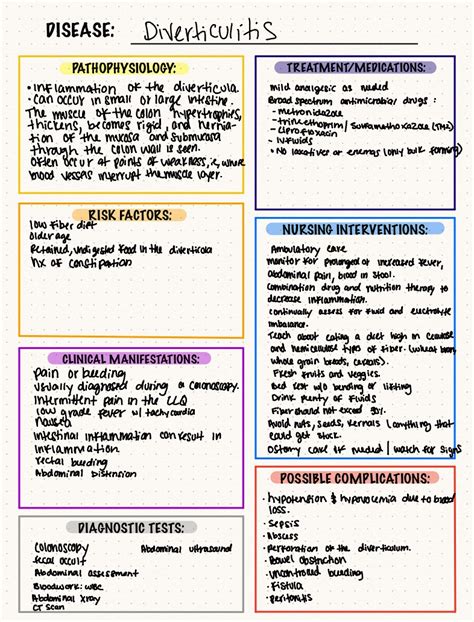 DISEASE: Diverticulitis
PATHOPHYSIOLOGY:
• Inflammation of the diverticula
• can occur in small or large intestine.
The muscle of the colon hypertrophies,
thickens, becomes rigid, and hernia-
tion of the mucosa and submucosa
through the colon wall is seen.
Often occur at points of weakness, i.e., where
blood vessels interrupt the muscle layer.
RISK FACTORS:
low fiber diet
Older age
Retained, undigested food in the diverticula
hx of constipation
CLINICAL MANIFESTATIONS:
pain or bleeding
usually diagnosed during a colonoscopy.
Intermittent pain in the LLQ
low grade fever w/ tachycardia
nausea
Intestinal inflammation can result in
inflammation
rectal bleeding
Abdominal distension
DIAGNOSTIC TESTS:
colonoscopy Abdominal ultrasound
fecal occult
Abdominal assessment
Bloodwork: WBC
Abdominal xray
CT scan
TREATMENT/MEDICATIONS:
mild analgesic as needed
Broad spectrum antimicrobial drugs:
- metronidazole
- trimethoprim/sulfamethoxazole
- ciprofloxacin
- IV fluids
• No laxatives or enemas (only bulk forming)
NURSING INTERVENTIONS:
Ambulatory care
monitor for prolonged or increased fever,
abdominal pain, blood in stool.
combination drug and nutrition therapy to
decrease inflammation.
continually assess for fluid and electrolyte
imbalance.
Teach about eating a diet high in cellulose
and hemicellulose types of fiber. (wheat bran,
whole grain breads, cereals).
Fresh fruits and veggies.
Bed rest w/o bending or lifting
Drink plenty of fluids
Fiber should not exceed
Avoid nuts, seeds, kernals (anything that
could get stuck.
Ostomy care if needed / watch for signs
POSSIBLE COMPLICATIONS:
• hypotension & hypovolemia due to blood
loss.
• sepsis
• Abscess
• perforation of the diverticulum.
• Bowel obstruction
• uncontrolled bleeding
• Fistula
• peritonitis